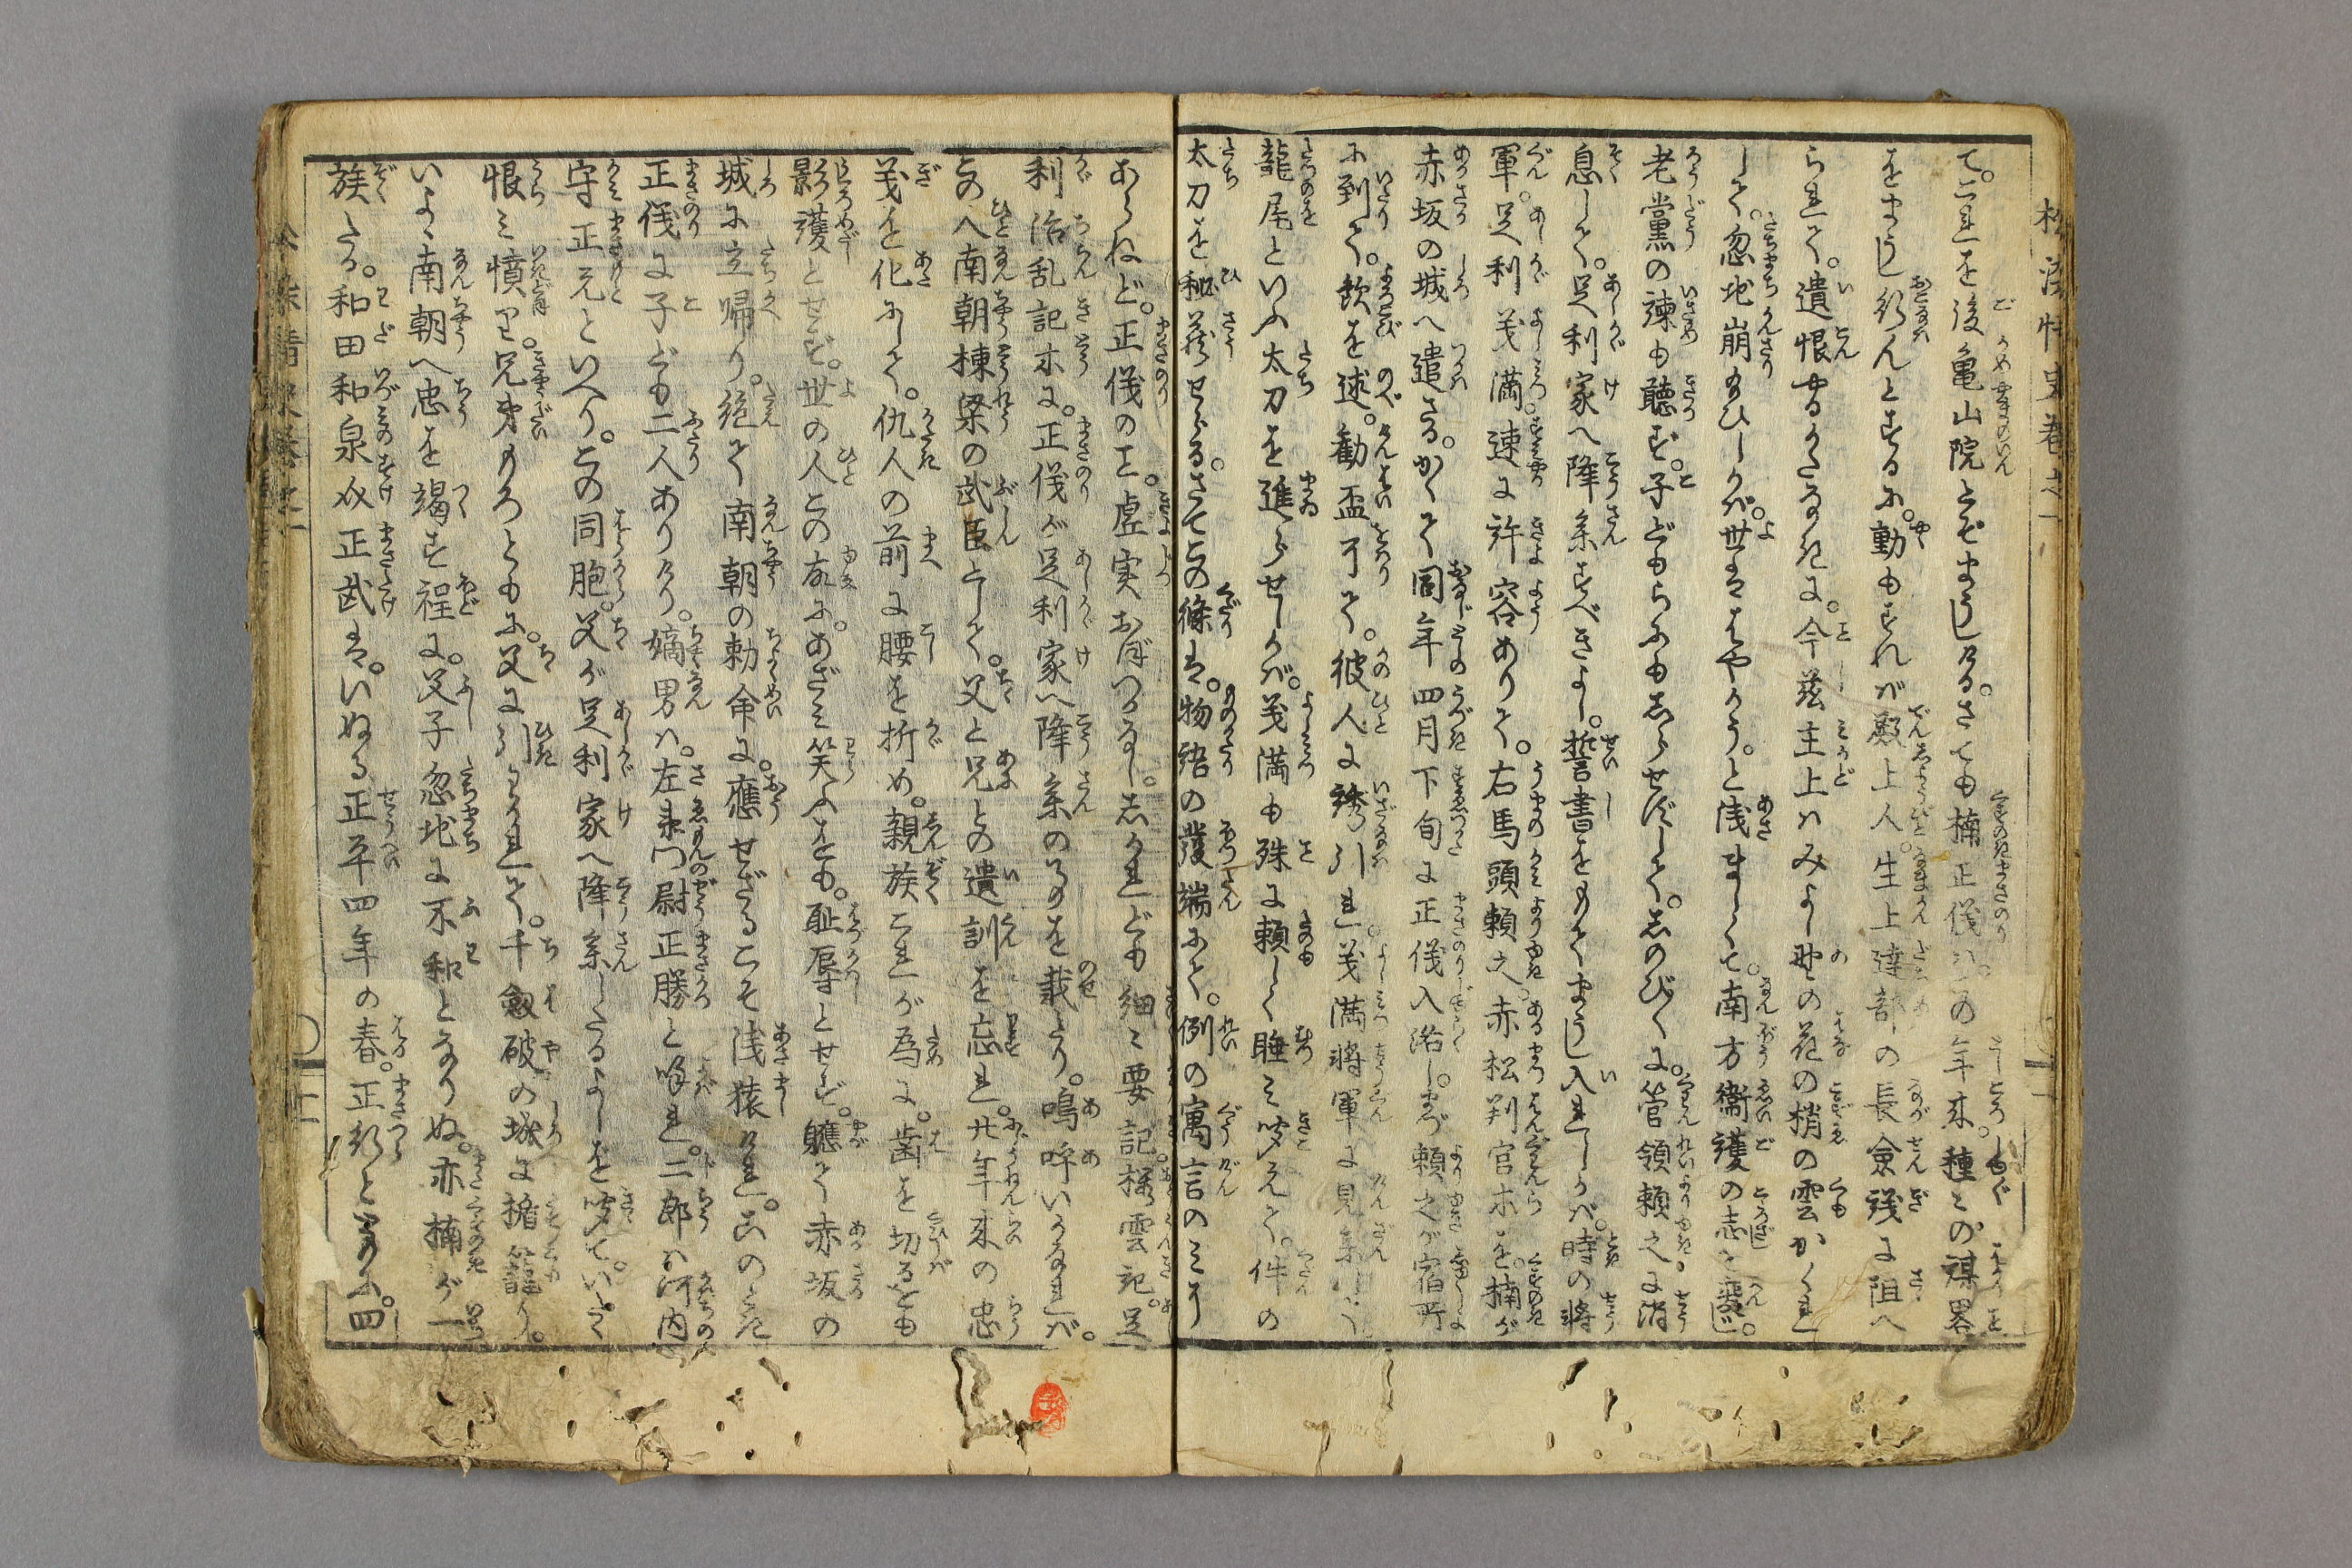 松染情史巻之一
て。これを後亀山院とぞまうしける。さても楠正儀は。この年来。種々の謀畧
をまうし行んとするに。動もすれば殿上人。生上達部の長僉議に阻へ
られて。遺恨やるかたなきに。今茲主上はみよし野の花の梢の雲がくれ
して。忽地崩給ひしかば。世ははやかう。と浅ましくて。南方衛護の志を変じ。
老黨の諫も聴ず。子どもらにもしらせずして。しのび〳〵に。管領頼之に消
息して。足利家へ降参すべきよし。誓書をもてまうし入れしかば。時の将
軍。足利義満。速に許容ありて。右馬頭頼之。赤松判官ホを。楠が
赤坂の城へ遣さる。かくて同年四月下旬に正儀入洛し。まづ頼之が宿所
に到りて。歓を述。勧盃了て。彼人に誘引れ。義満将軍に見参して
龍尾といふ太刀を進らせしかば。義満も殊に頼しく睦み聞えて。件の
太刀を秘蔵せらる。さてこの條は。物語の發端にて。例の寓言のみに
あらねど。正儀のこと。虚実おぼつかなし。しかれども細々要記。桜雲記。足
利治乱記ホに。正儀が足利家へ降参のよしを載たり。嗚呼いかなれば。
この人南朝棟梁の武臣として。父と兄との遺訓を忘れ。廿年来の忠
義を化にして。仇人の前に腰を折め。親族これが為に。歯を切るをも
影護とせず。世の人この故に。あざみ笑ふをも。耻辱とせず。軈て赤坂の
城に立帰り。絶て南朝の勅命に。應せざるこそ浅猿けれ。このとき
正儀に子ども二人ありけり。嫡男は。左衛門尉正勝と喚れ。二郎は河内
守正元といへり。この同胞。父が足利家へ降参したるよしを聞て。いたく
恨み憤り。兄弟もろともに。父に引わかれて。千劔破の城に楯籠り。
いよ〳〵南朝へ忠を竭す程に。父子忽地に不和となりぬ。亦楠が一
族たる。和田和泉守正武は。いぬる正平四年の春。正行とゝもに。四